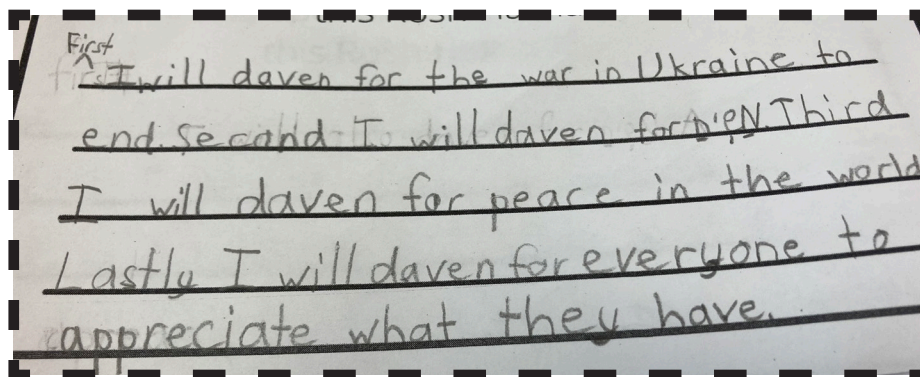 First
I will daven for the war in Ukraine to
end. Second I will daven for Third
I will daven for peace in the world
Lastly I will daven for everyone to
appreciate what they have.